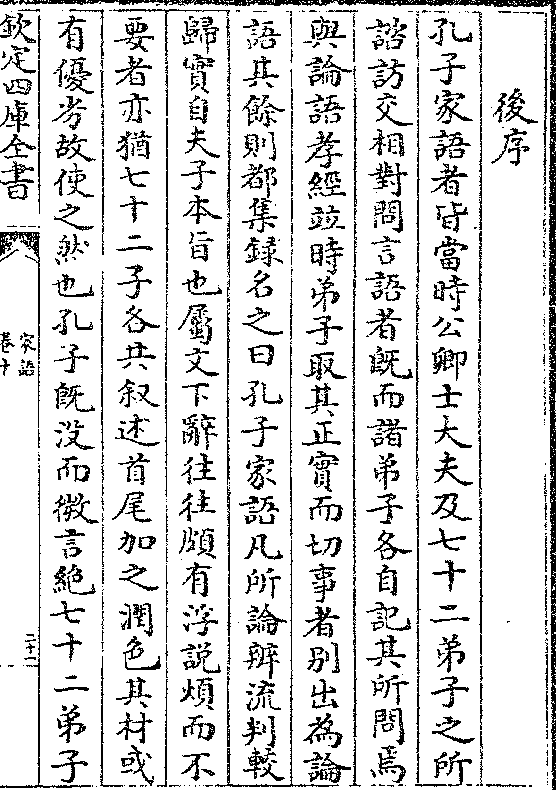 後序
孔子家語者皆當時公卿士大夫及七十二弟子之所
諮訪交相對問言語者既而諸弟子各自記其所問焉
與論語孝經竝時弟子取其正實而切事者別出為論
語其餘則都集録名之曰孔子家語凡所論辨流判較
歸實自夫子本旨也屬文下辭往往頗有浮説煩而不
要者亦猶七十二子各共叙述首尾加之潤色其材或
有優劣故使之然也孔子既没而微言絶七十二弟子
欽定四庫全書
家語
卷十
二十二